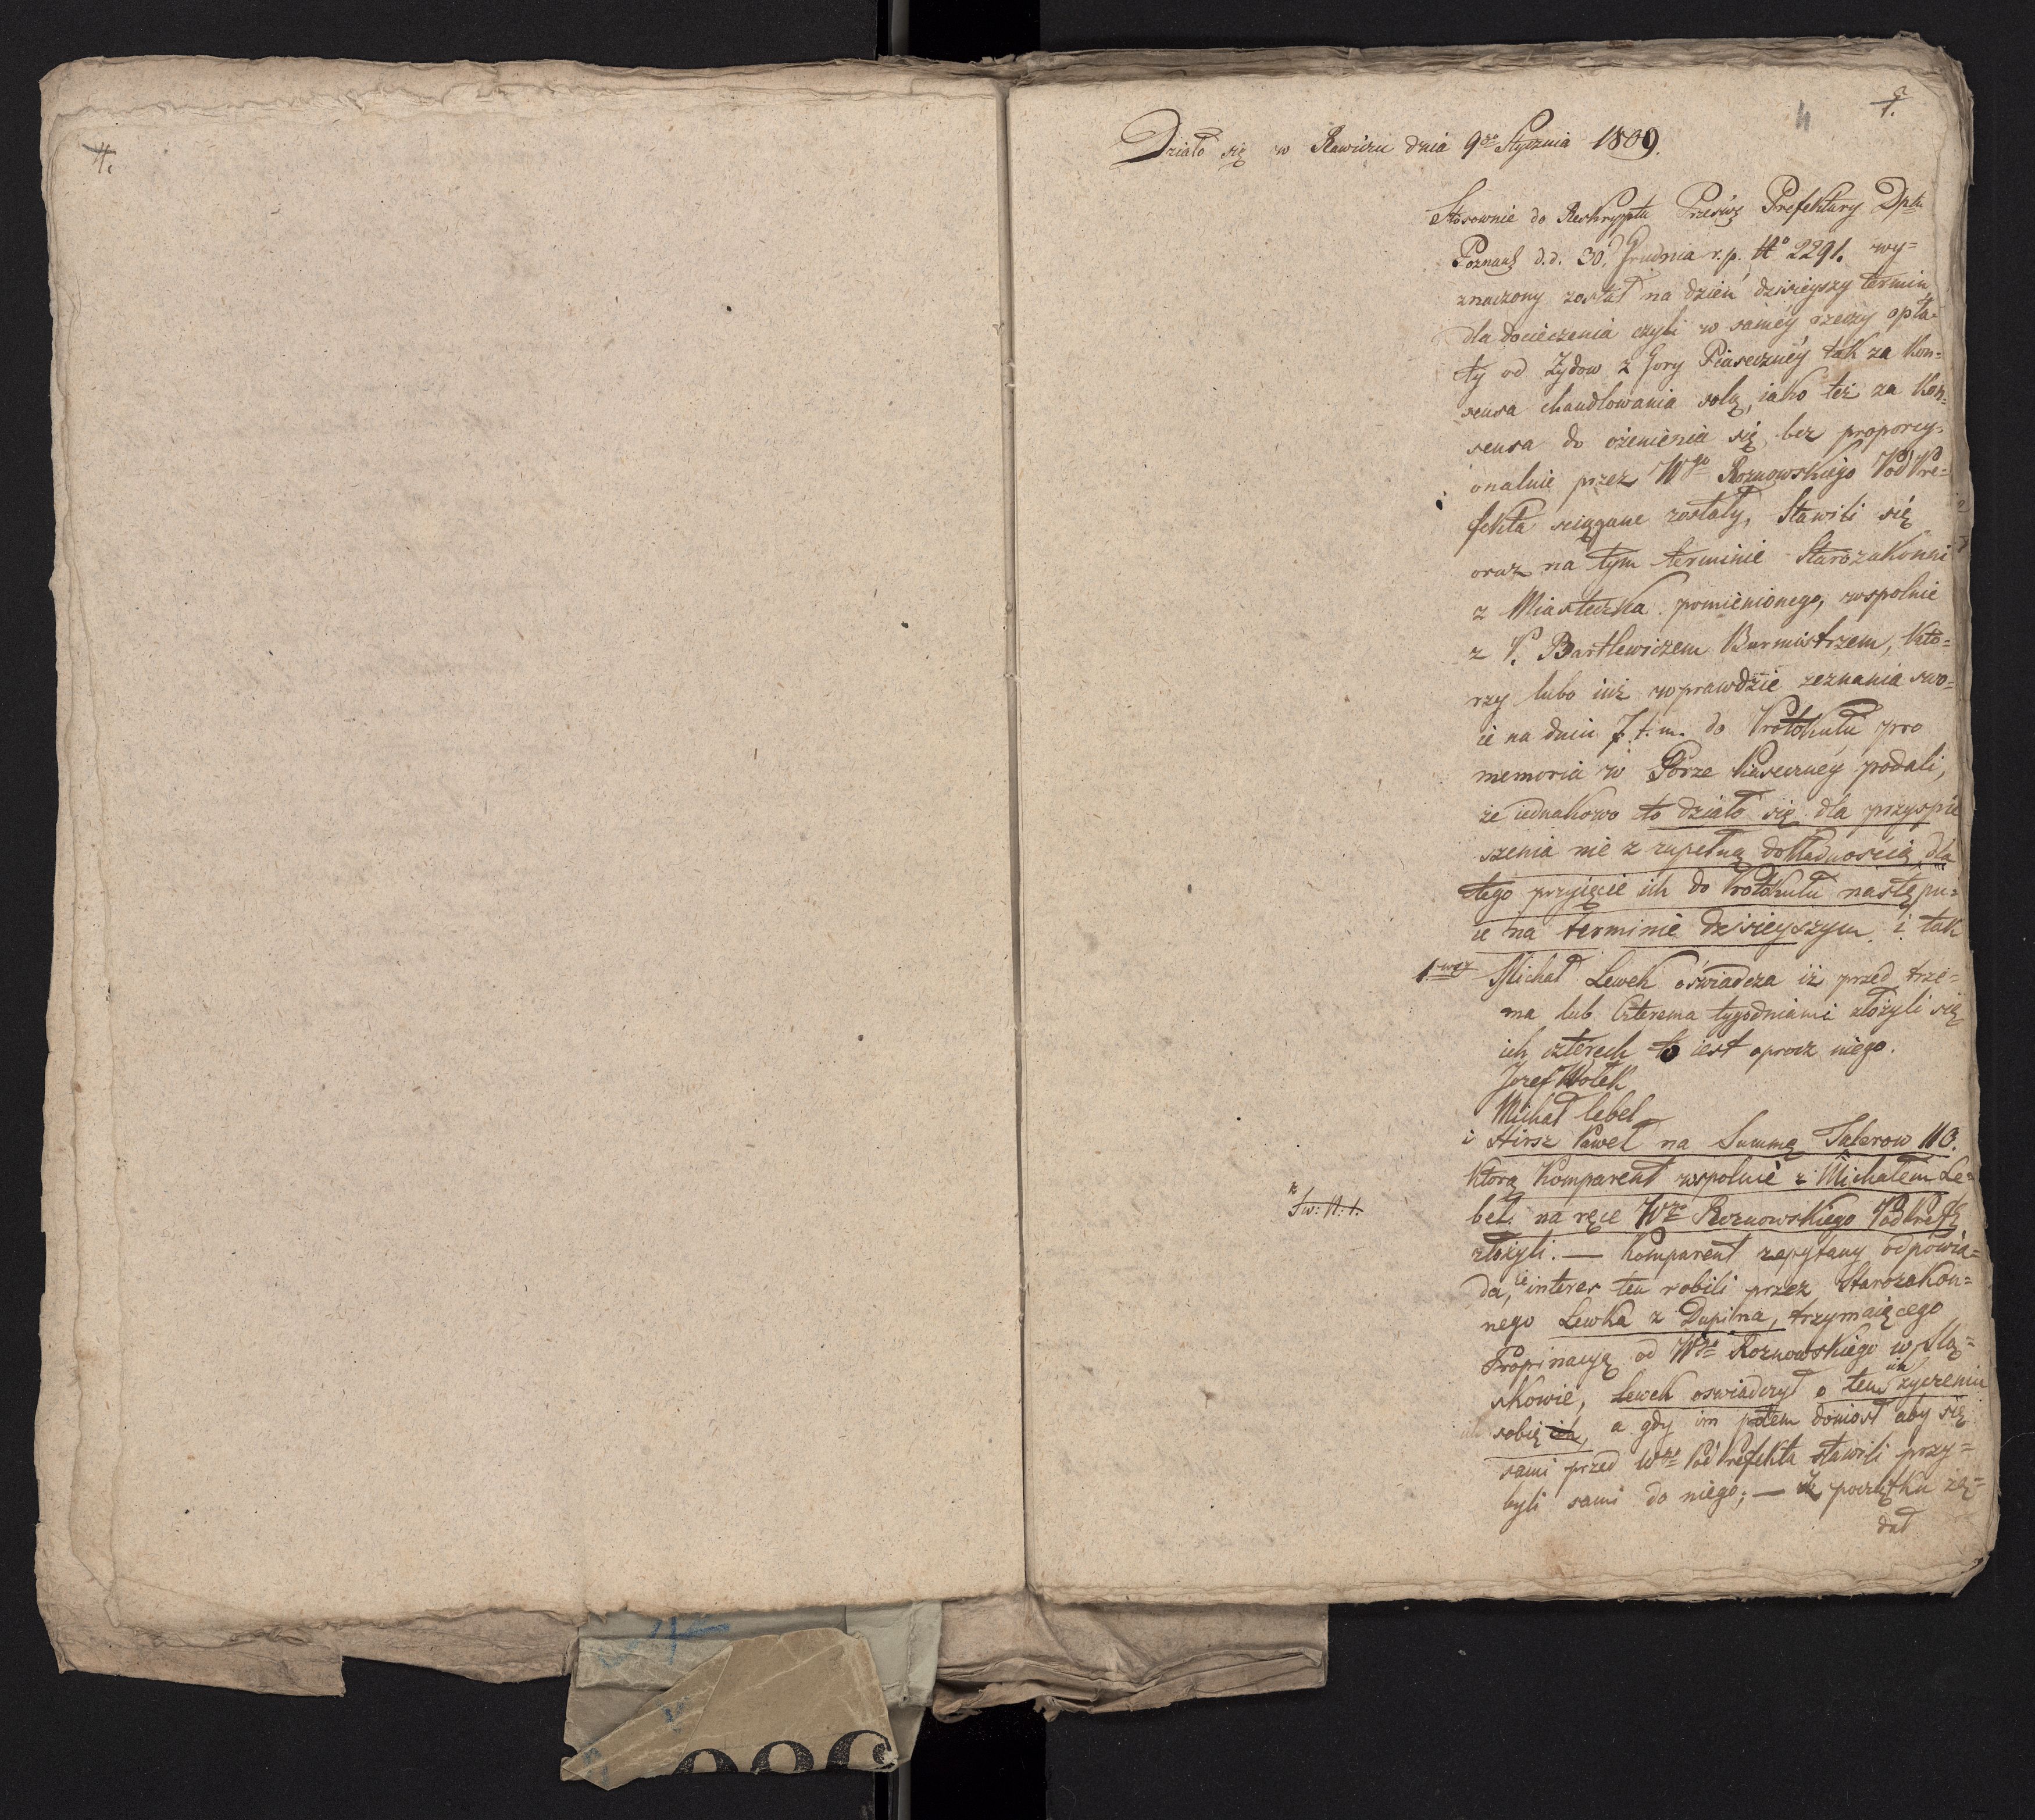 4.
4
Działo się w Rawiczu dnia 9go Stycznia 1809.
Stosownie do Reskryptu Prześw Prefektury Dptu
Poznansk d.d. 30. Grudnia r.p. No 2291. wy=
znaczony został na dzień dzisieyszy termin
dla docieczenia czyli w saméy rzeczy opła=
ty od Żydow z Gory Piasecznéy tak za Kon=
sensa chandlowania solą, iako też za Kon=
sensa do ożenienia się bez proporcy=
onalnie przez Wgo Roznowskiego PodPre=
fekta sciągane zostały, Stawili się
oraz na tym terminie Starozakonni
z Miasteczka pomienionego, wspolnie
z P. Bartlewiczem Burmistrzem, Kto=
rzy lubo iuż wprawdzie zeznania swo=
ie na dniu 7. t. m. do Protokułu pro
memoria w Górze Piaseczney podali,
że iednakowo to działo się dla przyspie
szenia nie z zupełną dokładnością, dla
tego przyięcie ich do Protokułu następu=
ie na terminie dzisieyszym i tak
1.wsz Michał Lewek oświadcza iż przed trze=
ma lub Czterema tygodniami złożyli się
ich czterech to iest oprocz niego.
Jozef Wolek
Michał Lebel
i Hirsz Pawel na Summę Talerow 110.
Ktorą Komparent wspolnie z Michałem Le=
bel. na ręce Wgo Roznowskiego PodPrefk
złożyli. — Komparent zapytany odpowia=
da, że interes ten robili przez Starozakon=
nego Lewka z Dupina, trzymaiącego
Propinacyą od Wgo Roznowskiego w Sla=
skowie, Lewek oswiadczył o tem ich życzeniu
sobię ich, a gdy im potem doniosł aby się
sami przed Wgo PodPrefekta stawili przy=
byli sami do niego; — Z początku żą=
dał